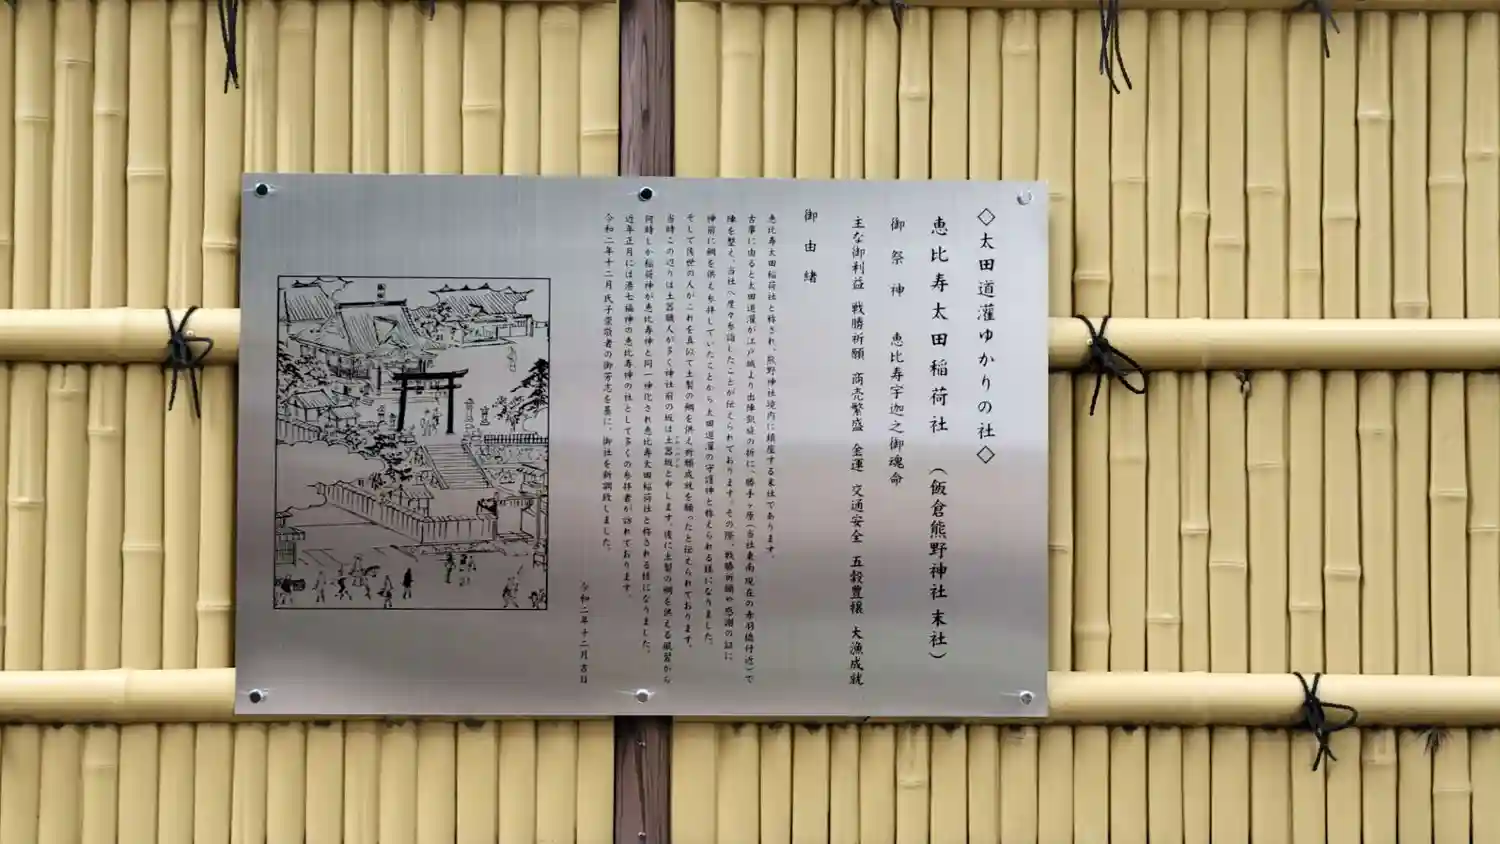 ◇太田道灌ゆかりの社◇
恵比寿太田稲荷社 (飯倉熊野神社 末社)
御祭神 恵比寿宇迦之御魂命
主な御利益 戦勝祈願 商売繁盛 金運 交通安全 五穀豊穣 大漁成就
御由緒
恵比寿太田稲荷社と称され、熊野神社境内に鎮座する末社であります。
古事に由ると太田道灌が江戸城より出陣凱旋の折に、勝手ヶ原(当社東南 現在の赤羽橋付近)で
陣を整え、当社へ度々参詣したことが伝えられております。その際、戦勝祈願や感謝の証に
神前に鯛を供え参拝していたことから太田道灌の守護神と称えられる様になりました。
そして後世の人がこれを真似て土製の鯛を供え祈願成就を願ったと伝えられております。
当時この辺りは土器職人が多く神社前の坂は土器坂と申します。後に土製の鯛を供える風習から
何時しか稲荷神が恵比寿神と同一神化され恵比寿太田稲荷社と称される様になりました。
近年正月には港七福神の恵比寿神の社として多くの参拝者が訪れております。
令和二年十二月氏子崇敬者の御芳志を基に、御社を新調致しました。
令和二年十二月吉日